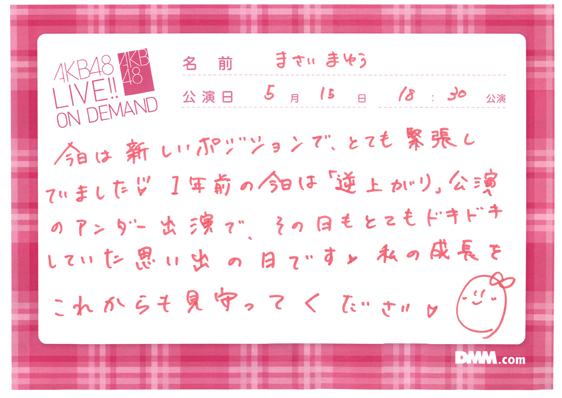 AKB48
LIVE!!
ON DEMAND
AKB
48
名前 まさい まゆう
公演日 5月 15日 18:30 公演
今日は新しいポジションで、とても緊張し
ていました!! 1年前の今日は「逆上がり」公演
のアンダー出演で、その日もとてもドキドキ
していた思い出の日です♥ 私の成長を
これからも見守ってください♥
DMM.com